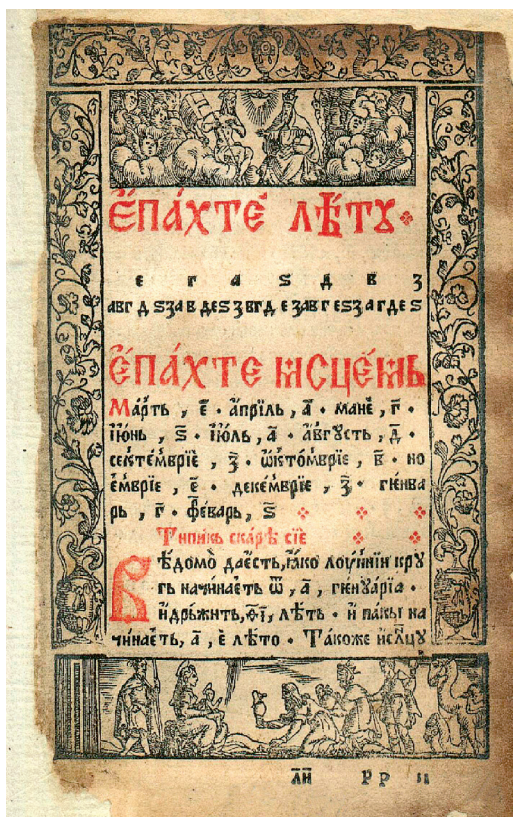 Е҆ПА́ХТЕ ЛѢ́ТꙊ
е г а ѕ д в з
авг д ѕза в деѕ з вгд е завг еѕз агдеѕ
Е҆ПА́ХТЕ Мⷭ҇СЦЕ́МЬ
Ма́рть , е҃ · а҆прїль , а҃ · манѐ , г҃ ·
і҆ю́нь , ѕ҃ · і҆ю́ль , а҃ · а҆́вгꙋсть , д҃ ·
секте́мврїе , з҃ · ѡ҆кто́мврїе , в҃ · но
е́мврїе , е҃ · декéмврїе , з҃ · генва
рь , г҃ · фе́варь , ѕ҃
Типикь скарѣ сїе
Вѣ́домо̀ дае́сть, ꙗ҆́ко лоу́нїи кру
гь начина́еть ѿ , а҃ , генꙋарїа ·
и҆дрьжить, ѳ҃і , лѣть · и҆ пакы на
чи́нае́ть , а҃ , е҆ лѣто · Та́коже и҆слⷩ҇цꙋ
ли рр